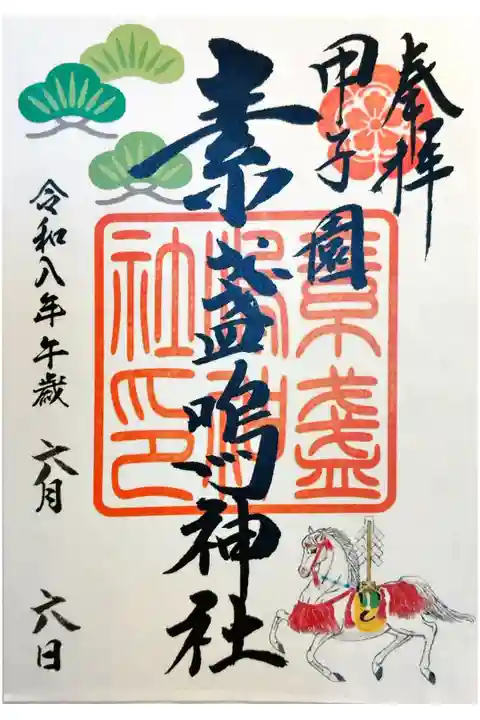 奉拝
甲子園
素盞嗚神社
素盞
嗚神
社印
令和八年午歳 六月 六日